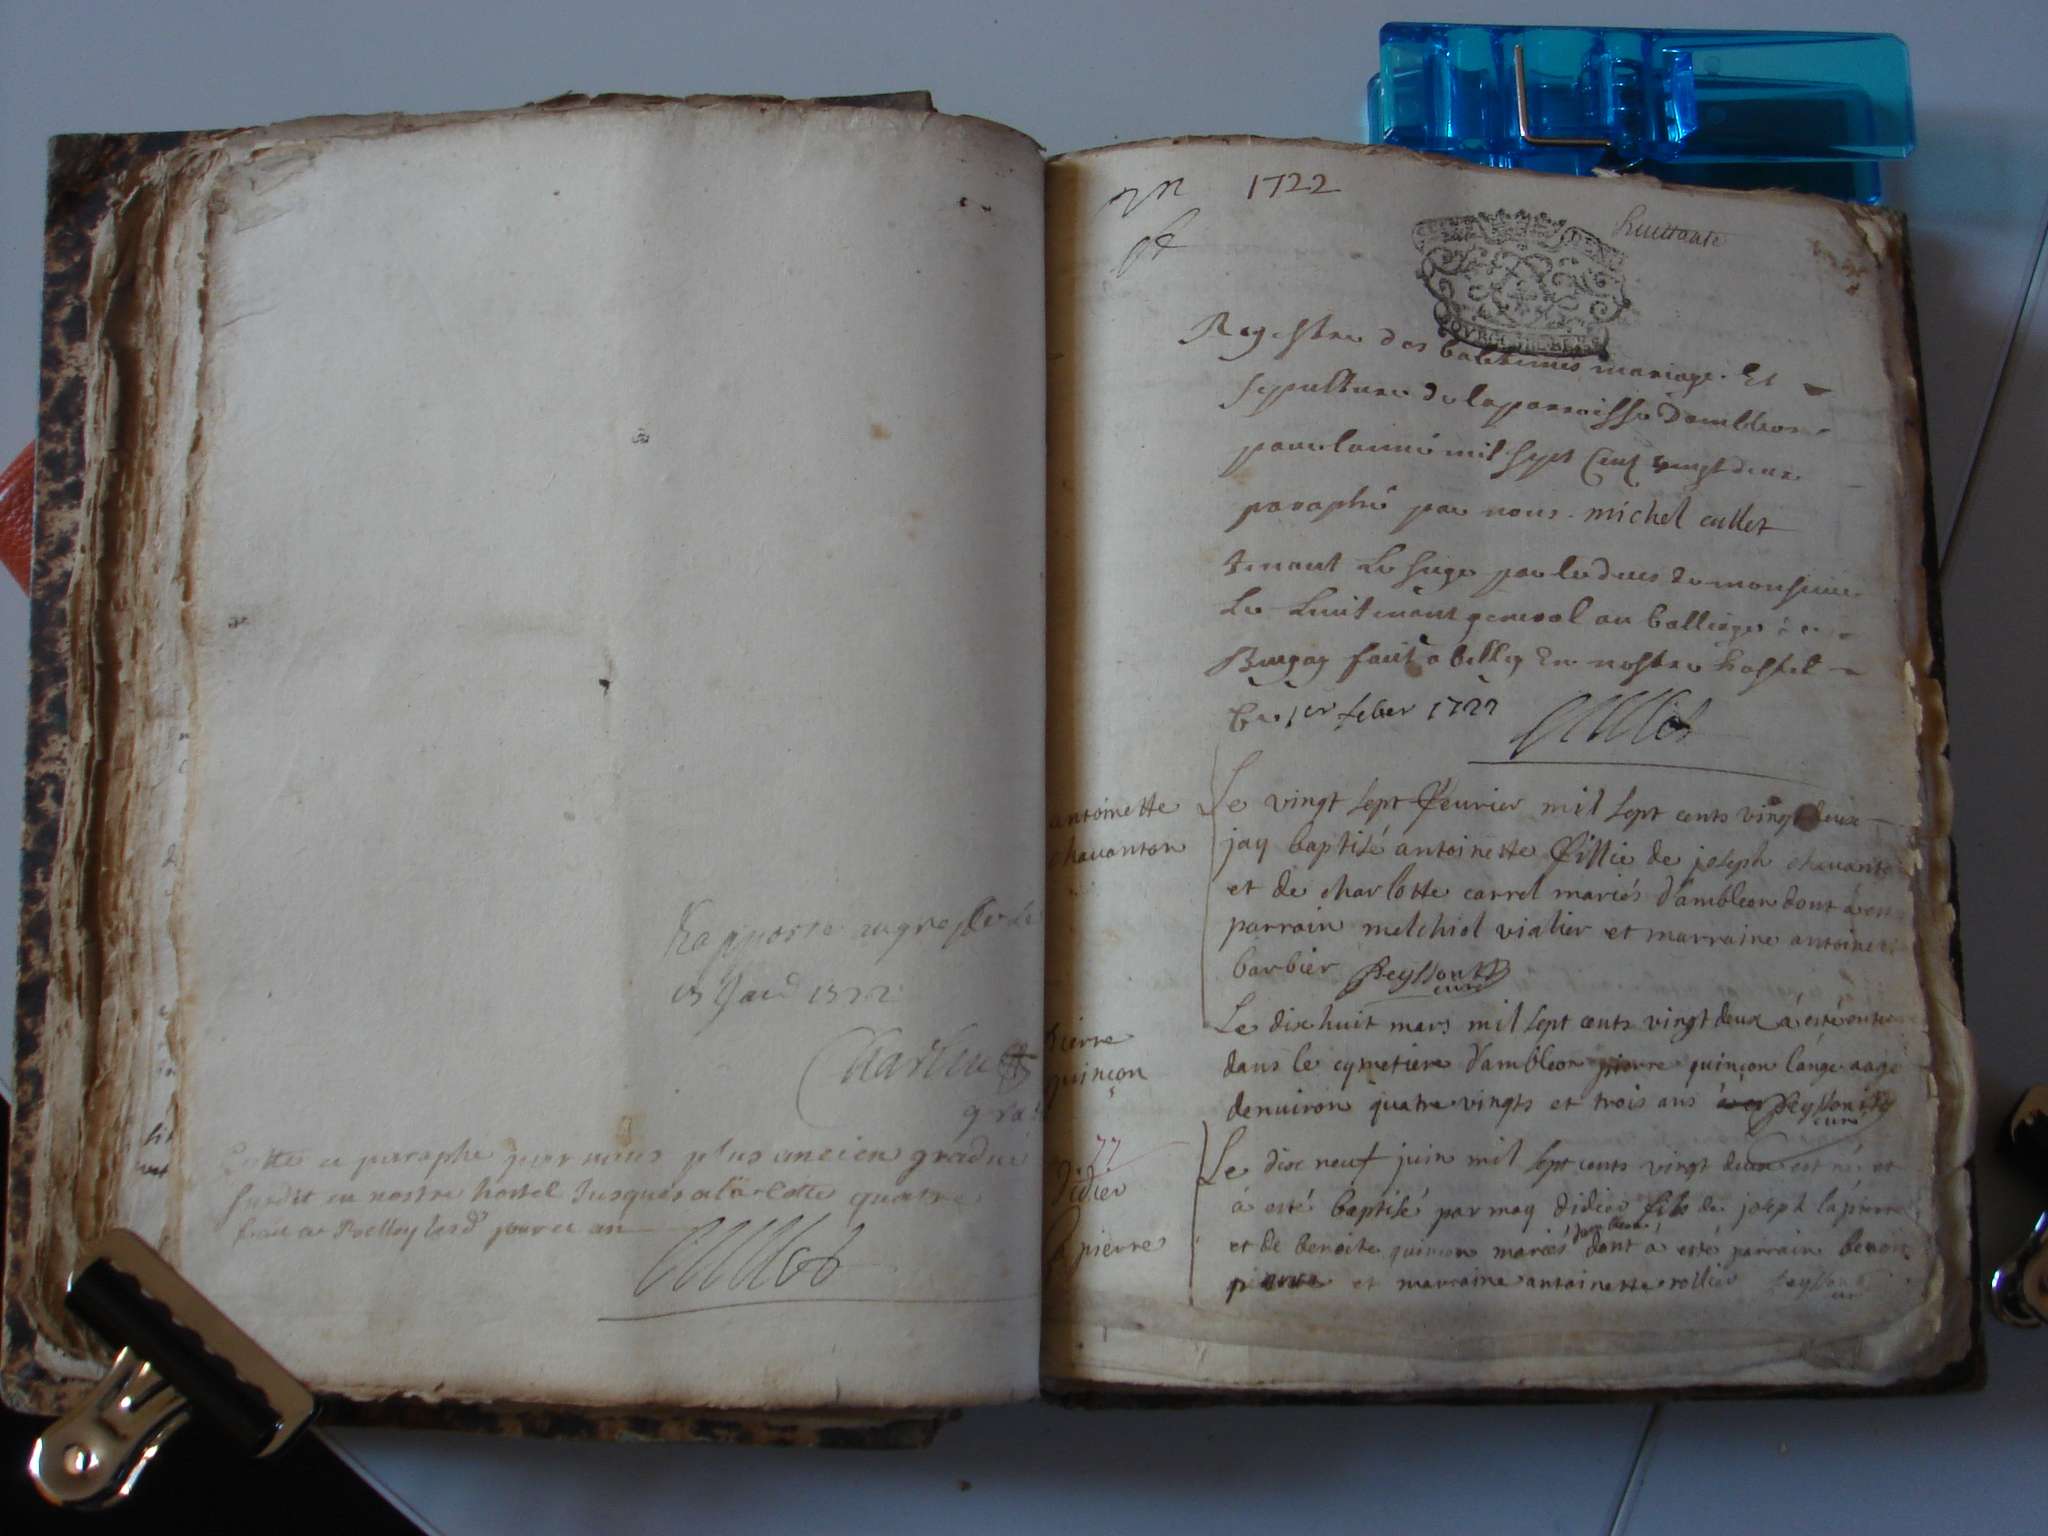 Rapporté au greffe le
Cotté et paraphé par nous plus ancien gradué
susdit en nostre hostel jusques a la cotte quatre
fait a Belley lesd jour et an
Cullet
1722
Registre des baptemes mariage Et
sepulture de la parroisse dambleon
pour lannée mil sept cent vingt deux
paraphé par nous michel cullet
tenant Le siege par le deces de monsieur
Le Lieutenant general au balliage
Bugey fait a belley En nostre hostel
Le 1er feber 1722
Cullet
antoinette
chavanton
Le vingt sept fevrier mil sept cents vingt deux
jay baptisé antoinette fillie de joseph chavanto
et de charlotte carrel mariés d'ambleon dont à est
parrain melchiol vialier et marraine antoinet
barbier Peysson
curé
pierre
quinçon
Le dix huit mars mil sept cents vingt deux à esté
dans le cymetiere d'ambleon pierre quinçon lange aagé
denuiron quatre vingts et trois ans Peysson
curé
77
Didier
lapierre
Le dix neuf juin mil sept cents vingt deux est né et
à esté baptisé par moy didier fils de joseph lapierre
et de benoite quinçon mariés d'ambleon dont à esté parrain benoit
pierre et marraine antoinette rollier Peysson
curé